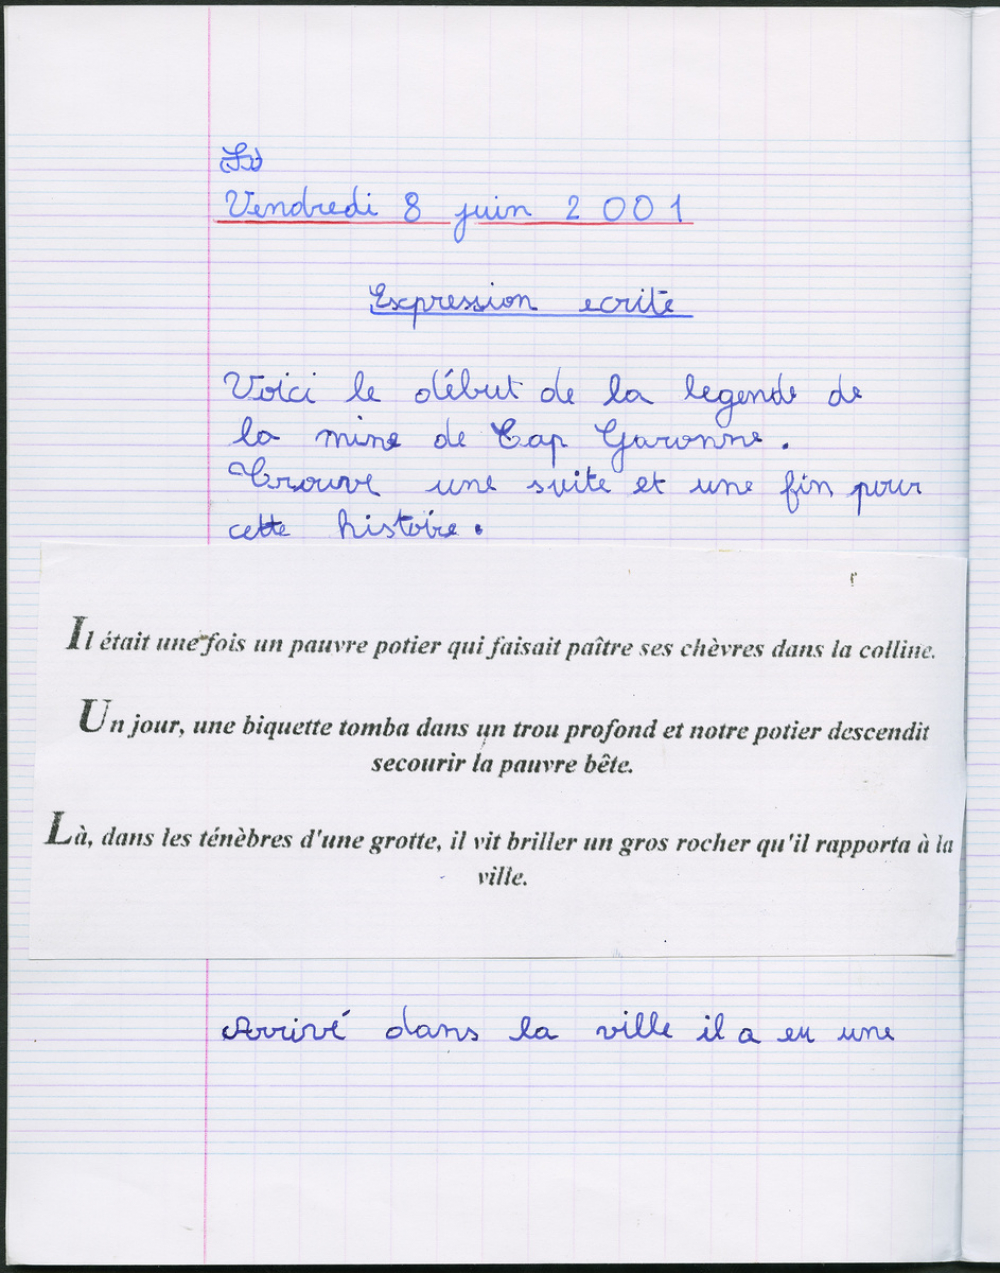 Vendredi 8 juin 2001
Expression ecrite
Voici le début de la legende de
la mine de Cap Garonne.
Trouve une suite et une fin pour
cette histoire.
Il était une fois un pauvre potier qui faisait paître ses chèvres dans la colline.
Un jour, une biquette tomba dans un trou profond et notre potier descendit
secourir la pauvre bête.
Là, dans les ténèbres d'une grotte, il vit briller un gros rocher qu'il rapporta à la
ville.
Arrivé dans la ville il a eu une